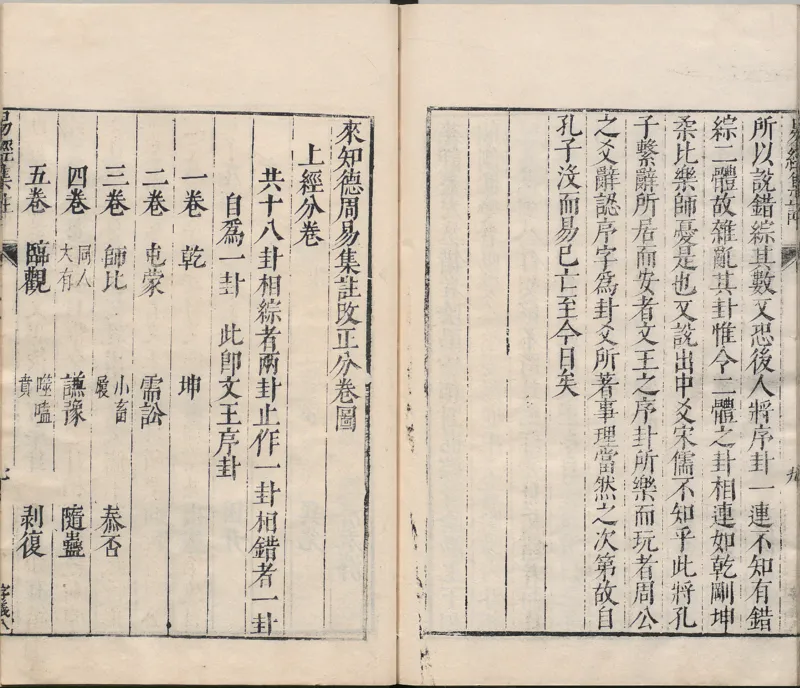 所以說錯綜其數又恐後人將序卦一連不知有錯
綜二體故雜亂其卦惟令二體之卦相連如乾剛坤
柔比樂師憂是也又說出中爻宋儒不知乎此將孔
子繫辭所居而安者文王之序卦所樂而玩者周公
之爻辭認序字爲卦爻所著事理當然之次第故自
孔子沒而易已亡至今日矣
來知德周易集註改正分卷圖
上經分卷
共十八卦相綜者兩卦止作一卦相錯者一卦
自爲一卦 此卽文王序卦
一卷 乾 坤
二卷 屯蒙 需訟
三卷 師比 小畜 履 泰否
四卷 同人 大有 謙豫 隨蠱
五卷 臨觀 噬嗑 賁 剥復
易經集註
字義八